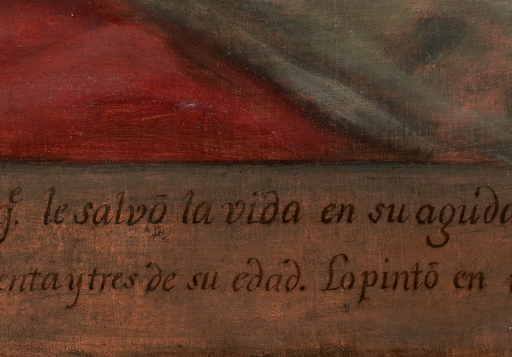 q.e le salvō la vida en su aguda
enta y tres de su edad. Lo pintō en